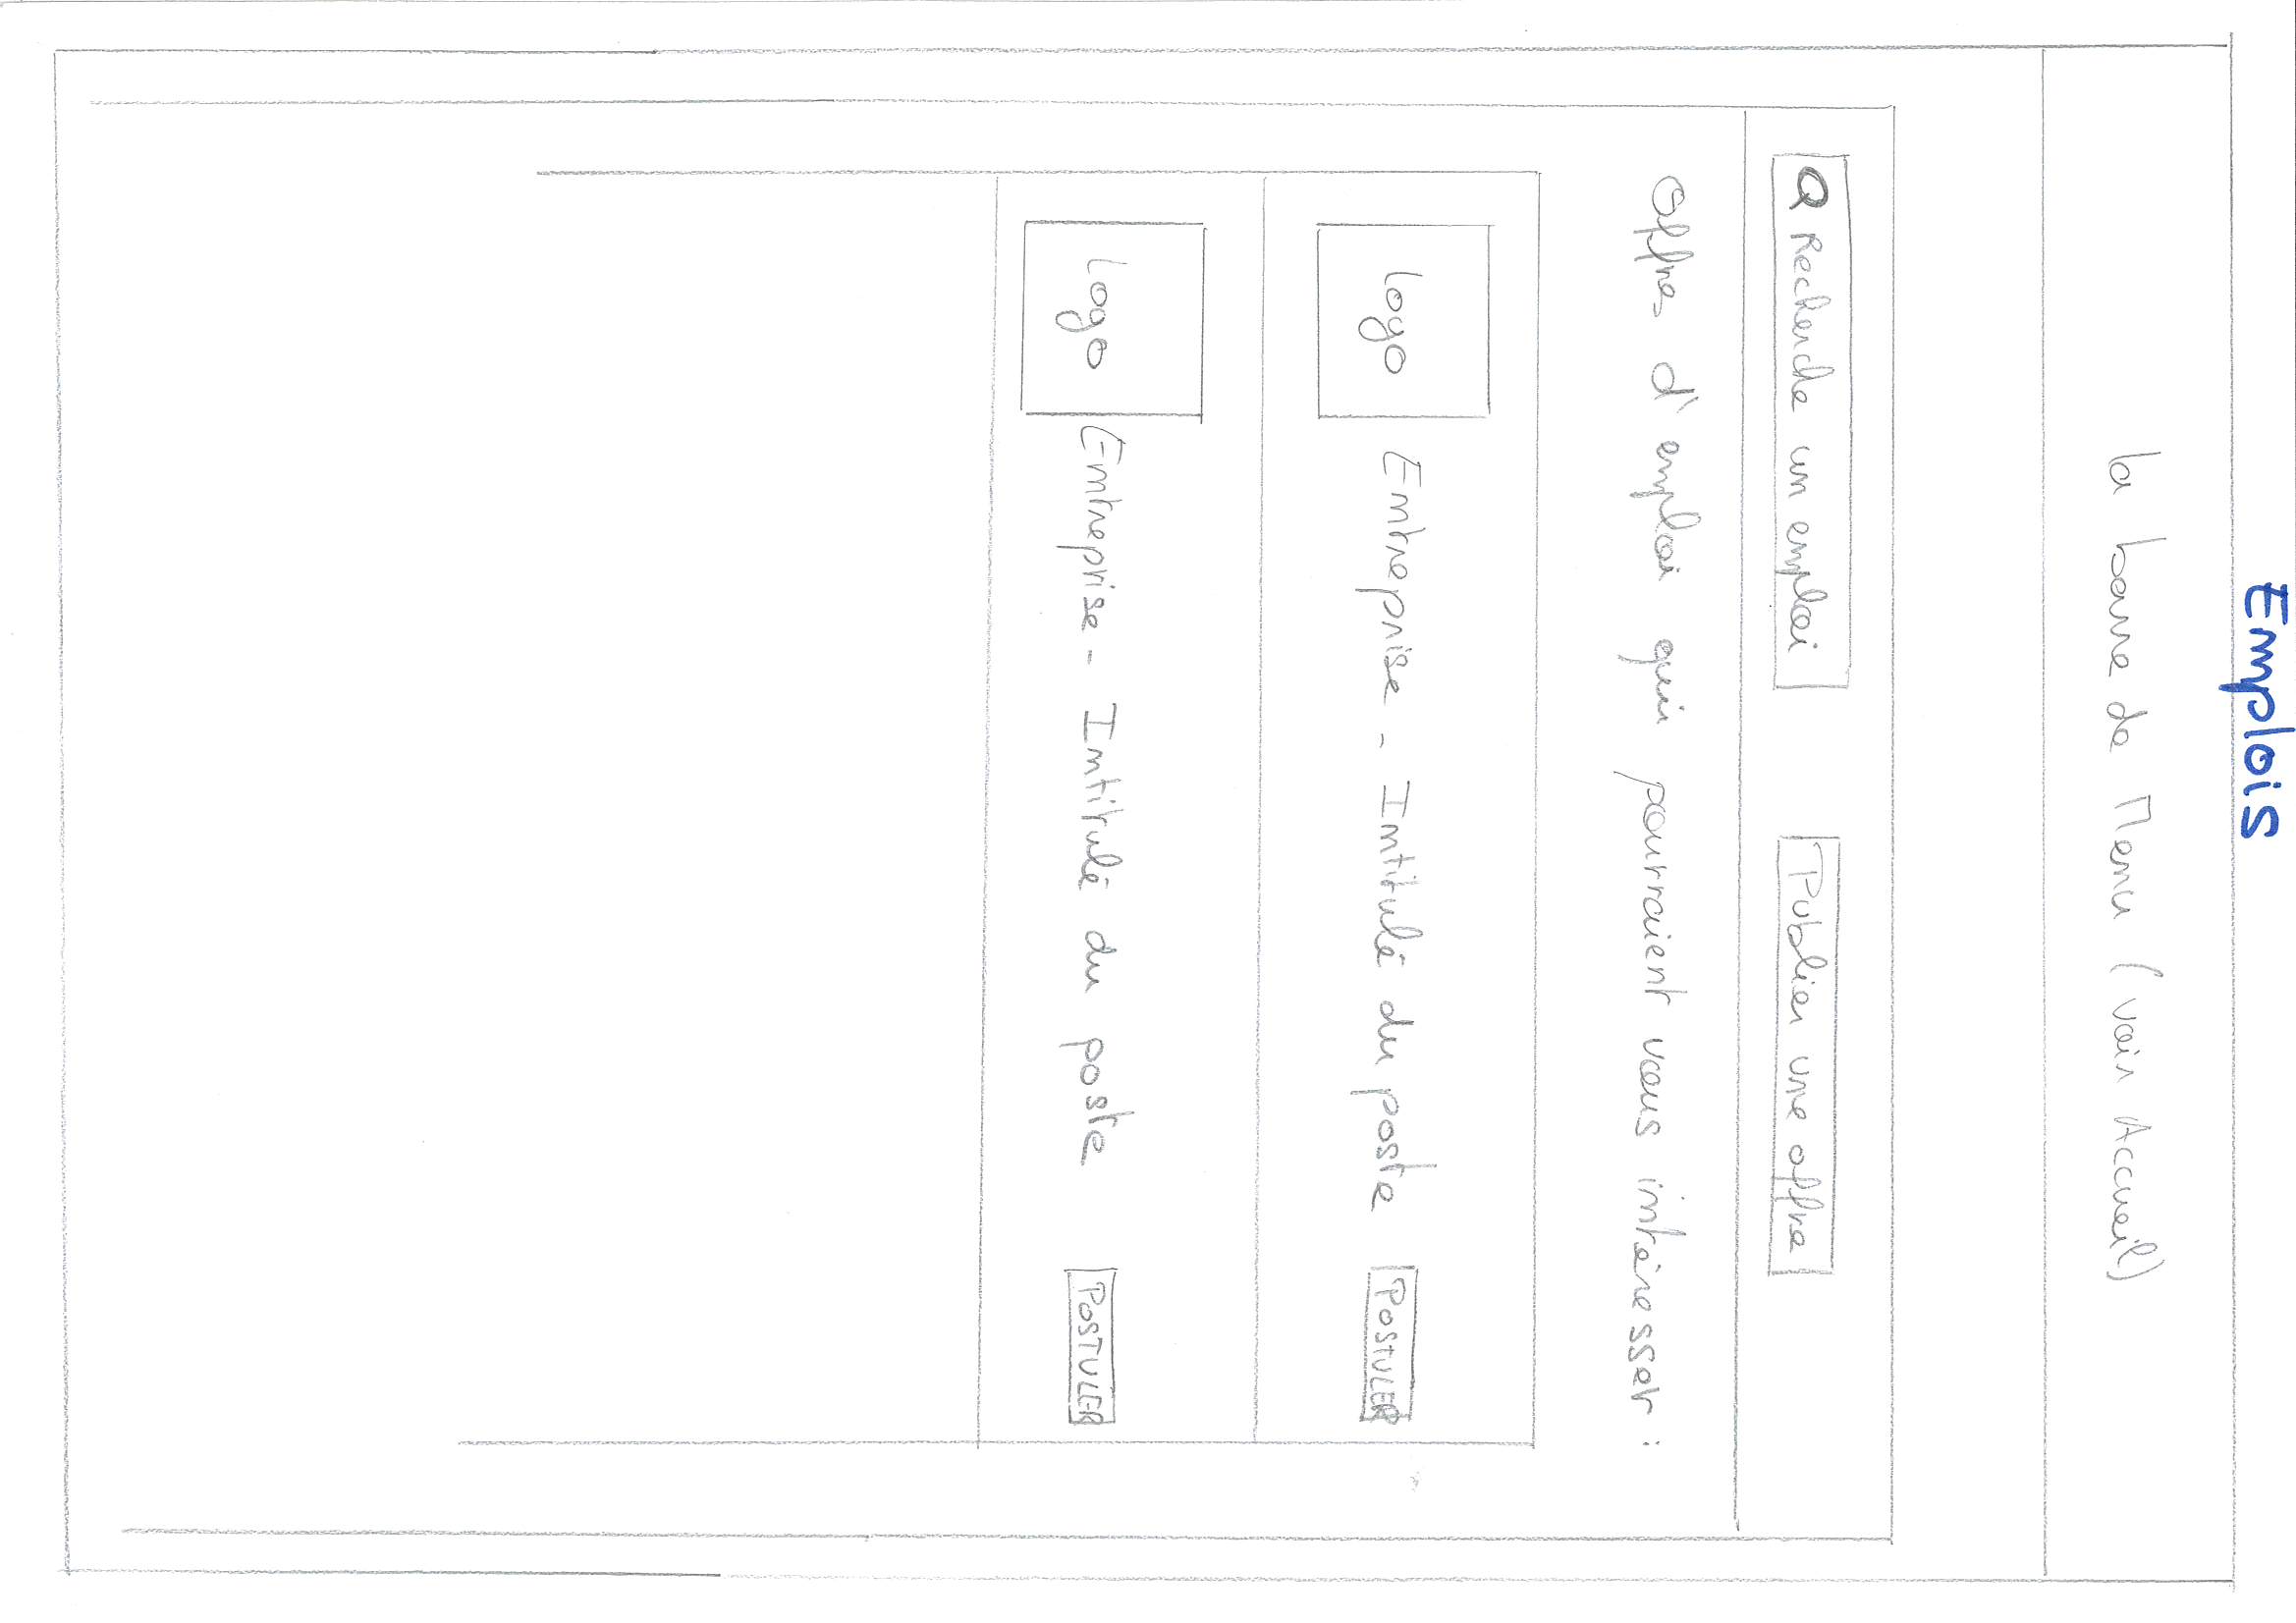 Emplois
la barre de Menu (voir Accueil)
Recherche un emploi
Publier une offre
Offres d'emploi qui pourraient vous intéresser :
Logo
Entreprise - Intitulé du poste
POSTULER
Logo
Entreprise - Intitulé du poste
POSTULER